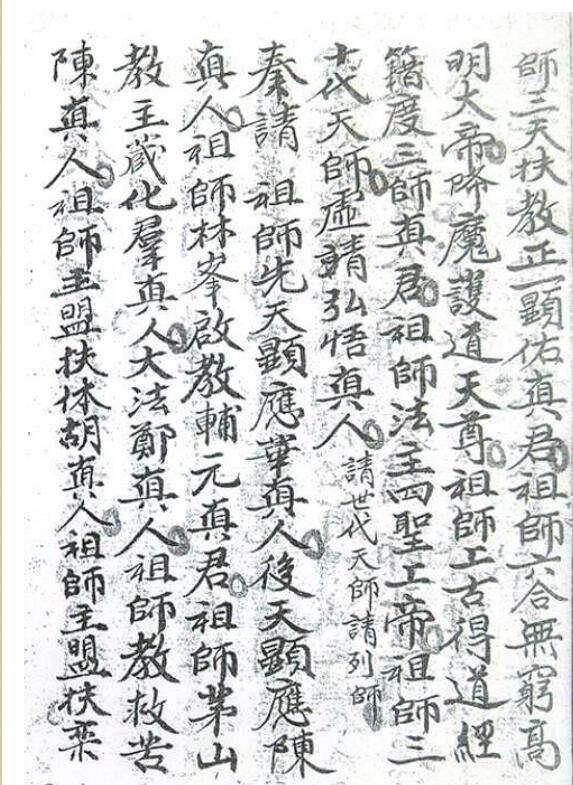 師三天扶教正一顯佑真君祖師六合無窮高
明大帝降魔護道天尊祖師上古得道經
籍度三師真君祖師法主四聖上帝祖師三
十代天師虛靖弘悟真人 請世代天師請列師
奏請 祖師先天顯應華真人後天顯應陳
真人祖師林峯啟教輔元真君祖師茅山
教主葴化羣真人大法鄭真人祖師教救苦
陳真人祖師主盟扶休胡真人祖師主盟扶栾